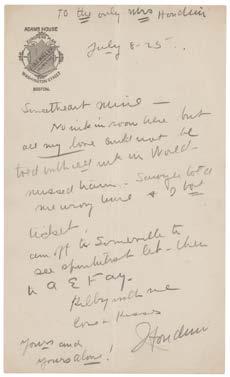 TO the only Mrs Houdini
ADAMS HOUSE
WASHINGTON STREET
BOSTON.
July 8-25
Sweetheart mine –
No ink in room here but
all my love could not be
told with all ink in World –
missed train – Sawyer told
me wrong time & I lost
ticket.
am off to Somerville to
see spiritualist – then
to
Kilby with me
Love & Kisses
Houdini
Yours and
yours alone!